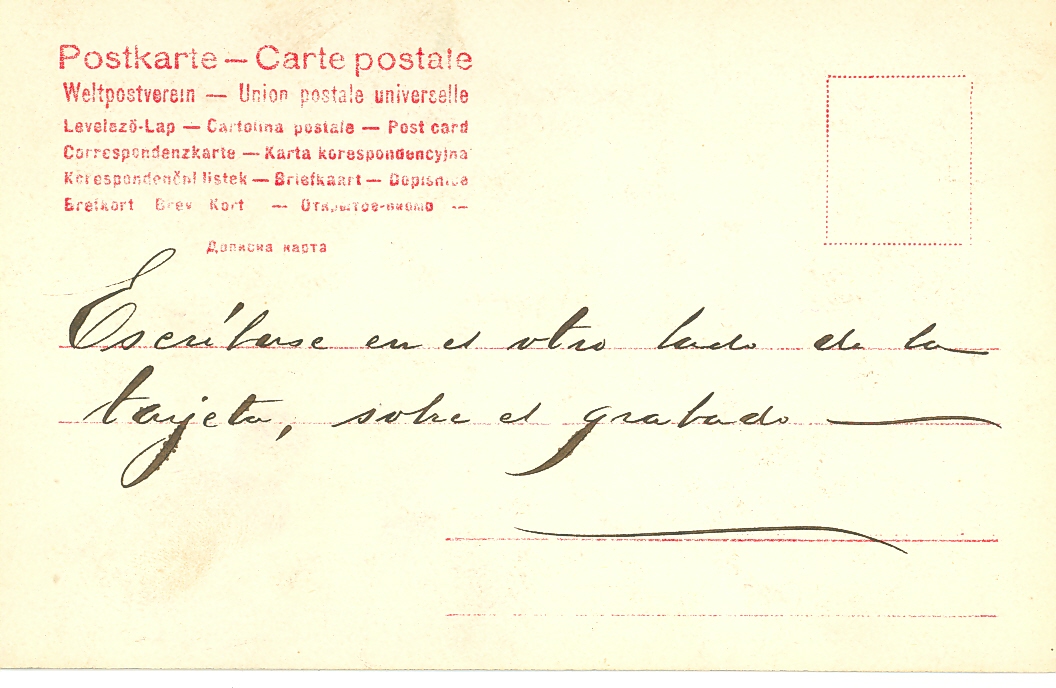 Postkarte — Carte postale
Weltpostverein — Union postale universelle
Levelező-Lap — Cartolina postale — Post card
Correspondenzkarte — Karta korespondencyjna
Korespondenční lístek — Briefkaart — Dopisnica
Brefkort Brev Kort — Открытое письмо —
Дописна карта
Escríbase en el otro lado de la
tarjeta, sobre el grabado